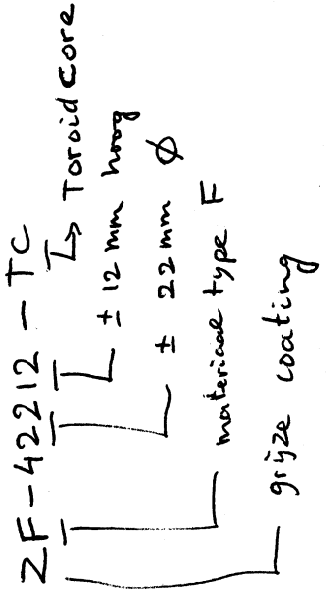 ZF-42212-TC
Toroid Core
± 12 mm hoog
± 22 mm Ø
materiaal type F
grijze coating